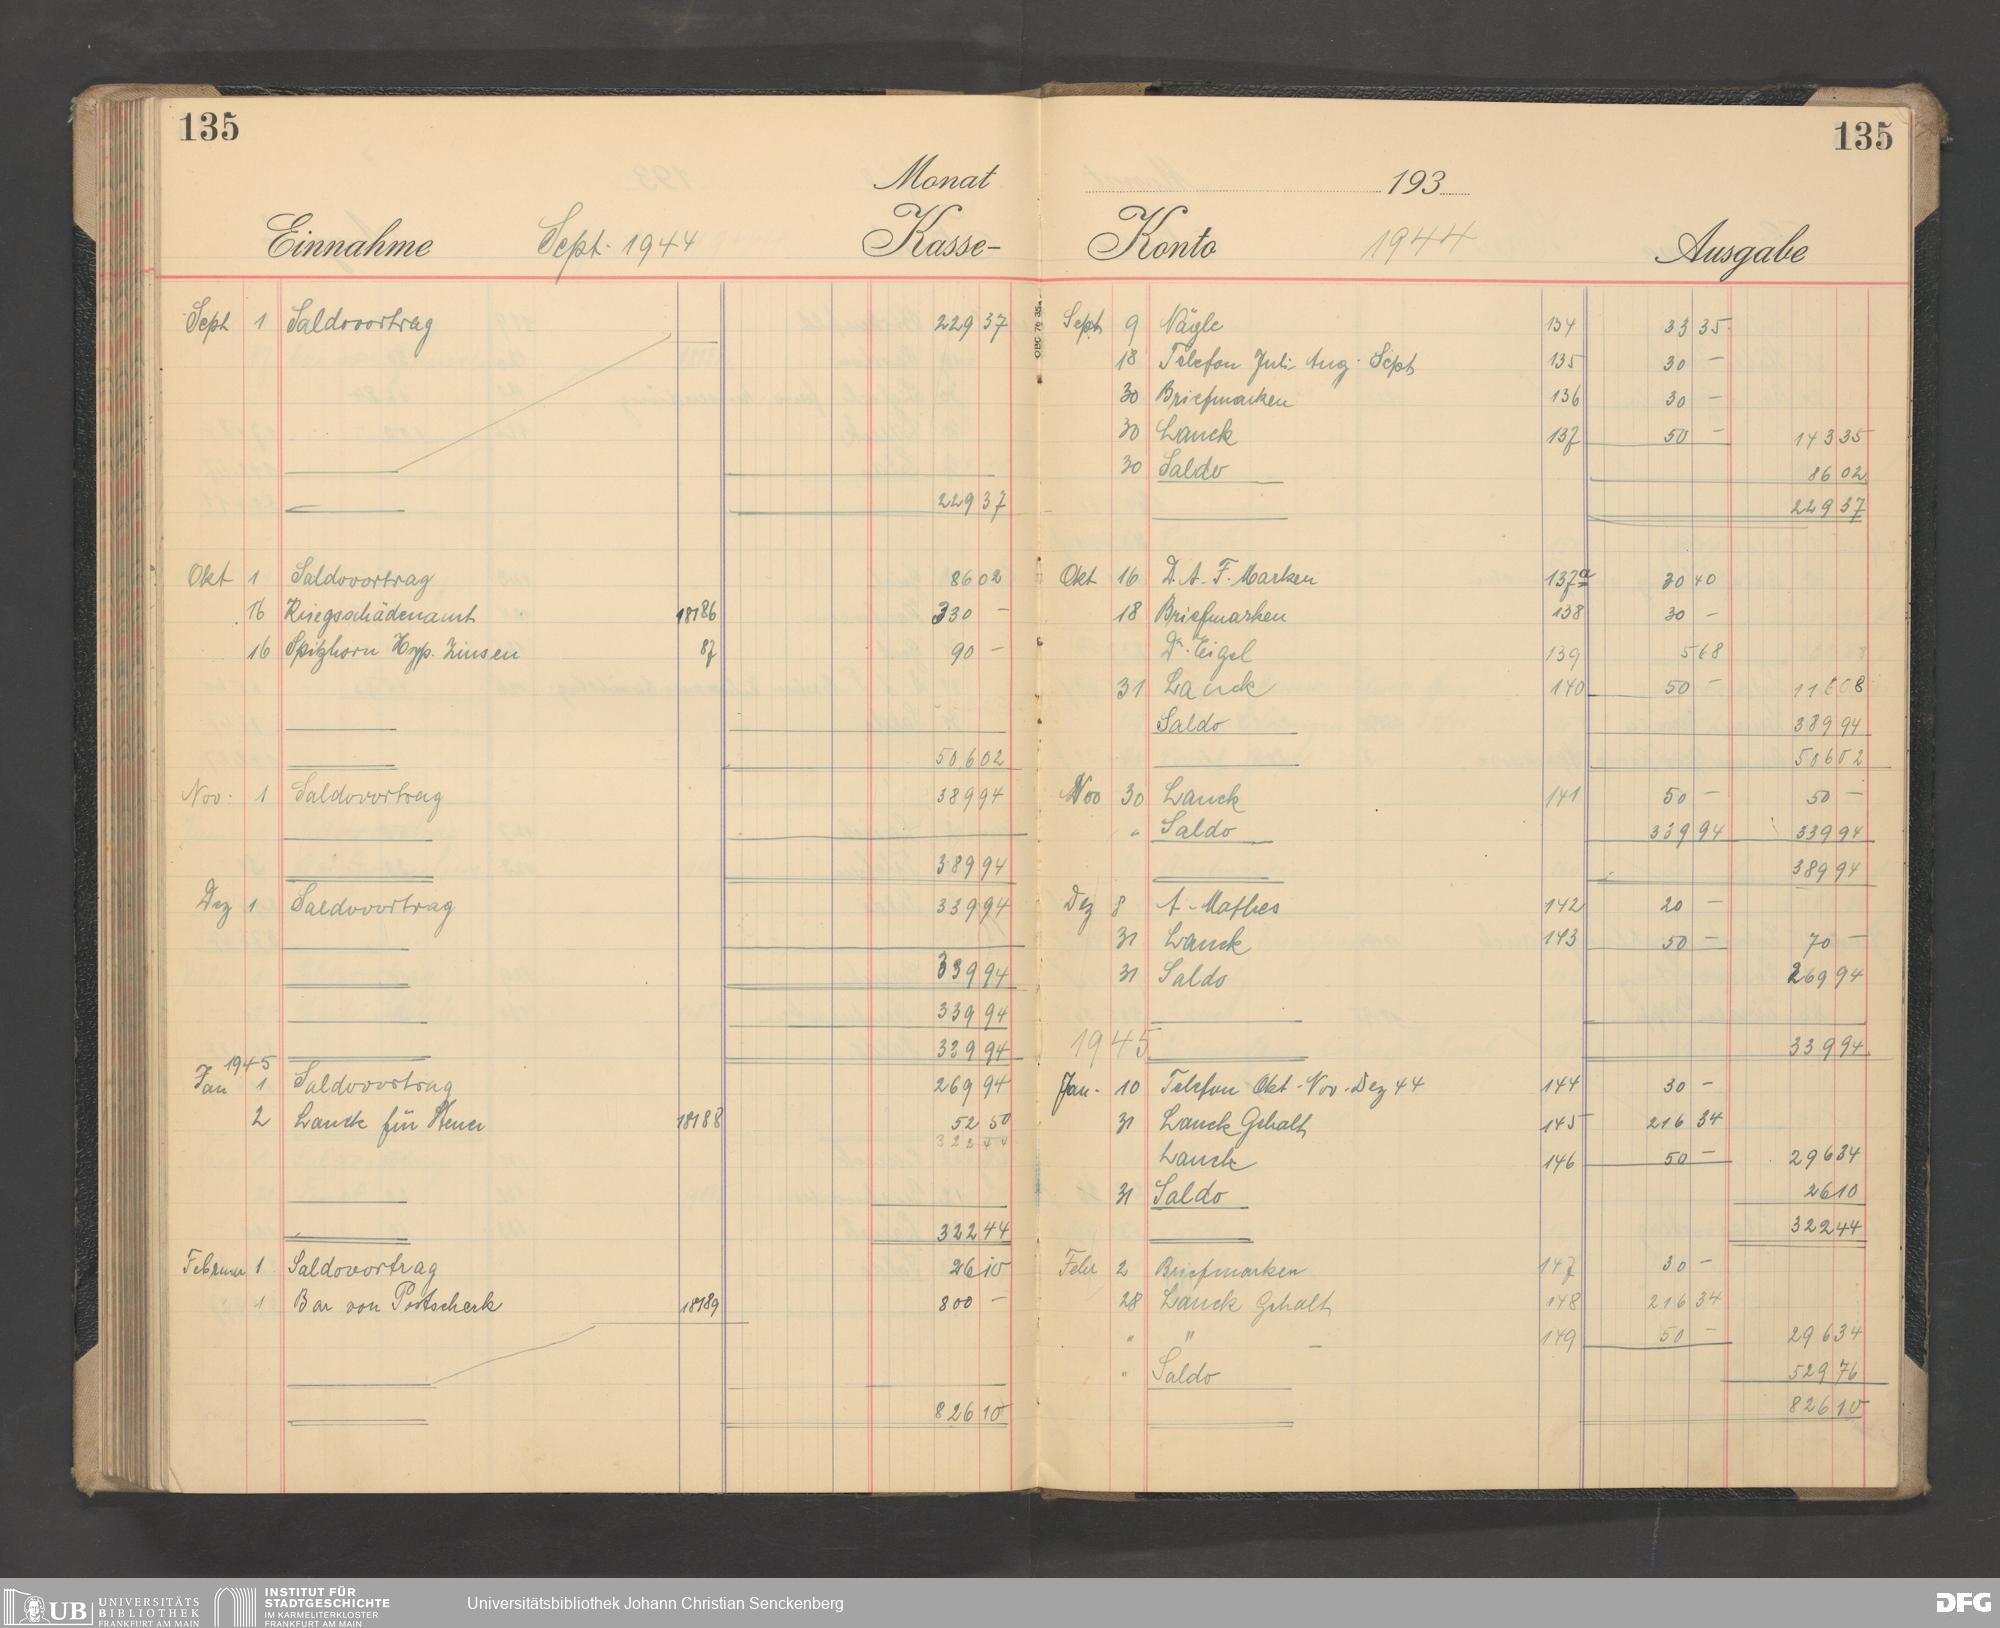 135
Monat
Einnahme Sept. 1944 Kasse-
Sept 1 Saldovortrag 229 37
229 37
Okt 1 Saldovortrag 86 02
16 Kriegsschädenamt 18186 330 —
16 Spitzhorn Hyp. Zinsen 87 90 —
506 02
Nov. 1 Saldovortrag 389 94
389 94
Dez 1 Saldovortrag 339 94
339 94
339 94
339 94
1945
Jan 1 Saldovortrag 269 94
2 Lanck für Steuer 18188 52 50
322 44
322 44
Februar 1 Saldovortrag 26 10
1 Bar von Postscheck 18189 800 —
826 10
135
193
Konto 1944 Ausgabe
Sept 9 Nägle 134 33 35
18 Telefon Juli Aug. Sept 135 30 —
30 Briefmarken 136 30 —
30 Lanck 137 50 — 143 35
30 Saldo 86 02
229 37
Okt 16 D.A.F. Marken 137a 30 40
18 Briefmarken 138 30 —
Dr. Eigel 139 5 68
31 Lanck 140 50 — 116 08
Saldo 389 94
506 02
Nov 30 Lanck 141 50 — 50 —
" Saldo 339 94 339 94
389 94
Dez 8 A. Mathes 142 20 —
31 Lanck 143 50 — 70 —
31 Saldo 269 94
1945
339 94
Jan. 10 Telefon Okt. Nov. Dez 44 144 30 —
31 Lanck Gehalt 145 216 34
Lanck 146 50 — 296 34
31 Saldo 26 10
322 44
Febr 2 Briefmarken 147 30 —
28 Lanck Gehalt 148 216 34
" " — 149 50 — 296 34
" Saldo 529 76
826 10
UB UNIVERSITÄTS
BIBLIOTHEK
FRANKFURT AM MAIN
INSTITUT FÜR
STADTGESCHICHTE
IM KARMELITERKLOSTER
FRANKFURT AM MAIN
Universitätsbibliothek Johann Christian Senckenberg
DFG